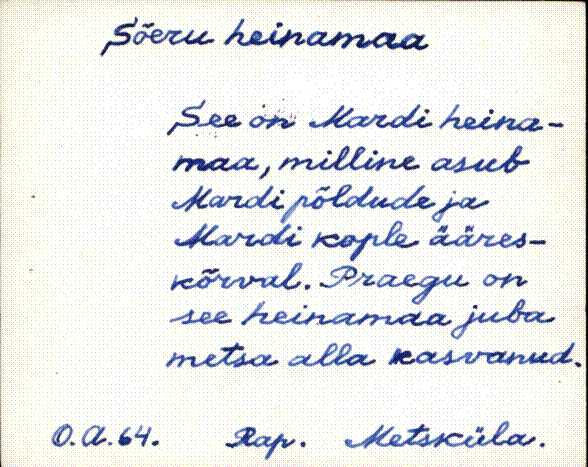 Sõeru heinamaa
See on Mardi heina-
maa, milline asub
Mardi põldude ja
Mardi kople ääres-
kõrval. Praegu on
see heinamaa juba
metsa alla kasvanud.
O.A.64. Rap. Metsküla.